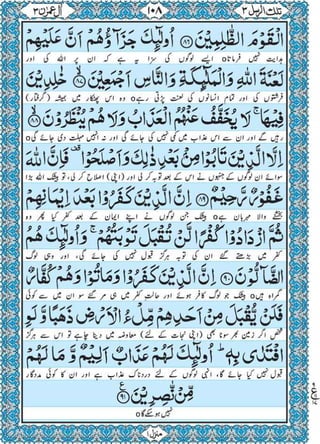 تلك الرسل ٣ ١٠٨ اٰل عمرٰن ٣
الْقَوْمَ الظّٰلِمِيْنَ ﴿۸۶﴾ اُولٰٓئِكَ جَزَآؤُهُمْ اَنَّ عَلَيْهِمْ
ہدایت نہیں فرماتا o ایسے لوگوں کی سزا یہ ہے کہ ان پر اللہ کی اور
لَعْنَةَ اللّٰهِ وَالْمَلٰٓئِكَةِ وَالنَّاسِ اَجْمَعِيْنَ ﴿۸۷﴾ خٰلِدِيْنَ
فرشتوں کی اور تمام انسانوں کی لعنت پڑتی رہے o وہ اس پھٹکار میں ہمیشہ (گرفتار)
فِيْهَا ۚ لَا يُخَفَّفُ عَنْهُمُ الْعَذَابُ وَلَا هُمْ يُنْظَرُوْنَ ﴿۸۸﴾
رہیں گے اور ان سے اس عذاب میں کمی نہیں کی جائے گی اور نہ انہیں مہلت دی جائے گی o
اِلَّا الَّذِيْنَ تَابُوْا مِنْۢ بَعْدِ ذٰلِكَ وَاَصْلَحُوْا ۫ فَاِنَّ اللّٰهَ
سوائے ان لوگوں کے جنہوں نے اس کے بعد توبہ کر لی اور (اپنی) اصلاح کر لی، تو بیشک اللہ بڑا
غَفُوْرٌ رَّحِيْمٌ ﴿۸۹﴾ اِنَّ الَّذِيْنَ كَفَرُوْا بَعْدَ اِيْمَانِهِمْ
بخشنے والا مہربان ہے o بیشک جن لوگوں نے اپنے ایمان کے بعد کفر کیا پھر وہ
ثُمَّ ازْدَادُوْا كُفْرًا لَّنْ تُقْبَلَ تَوْبَتُهُمْ ۚ وَاُولٰٓئِكَ هُمُ
کفر میں بڑھتے گئے ان کی توبہ ہرگز قبول نہیں کی جائے گی، اور وہی لوگ
الضَّآلُّوْنَ ﴿۹۰﴾ اِنَّ الَّذِيْنَ كَفَرُوْا وَمَاتُوْا وَهُمْ كُفَّارٌ
گمراہ ہیں o بیشک جو لوگ کافر ہوئے اور حالتِ کفر میں ہی مر گئے سو ان میں سے کوئی
فَلَنْ يُّقْبَلَ مِنْ اَحَدِهِمْ مِّلْءُ الْاَرْضِ ذَهَبًا وَّلَوِ
شخص اگر زمین بھر سونا بھی (اپنی نجات کے لئے) معاوضہ میں دینا چاہے تو اس سے ہرگز
افْتَدٰى بِهٖ ؕ اُولٰٓئِكَ لَهُمْ عَذَابٌ اَلِيْمٌ وَّمَا لَهُمْ
قبول نہیں کیا جائے گا، انہی لوگوں کے لئے دردناک عذاب ہے اور ان کا کوئی مددگار
مِّنْ نّٰصِرِيْنَ ﴿۹۱﴾ ع
نہیں ہو سکے گا o
منزل ۱